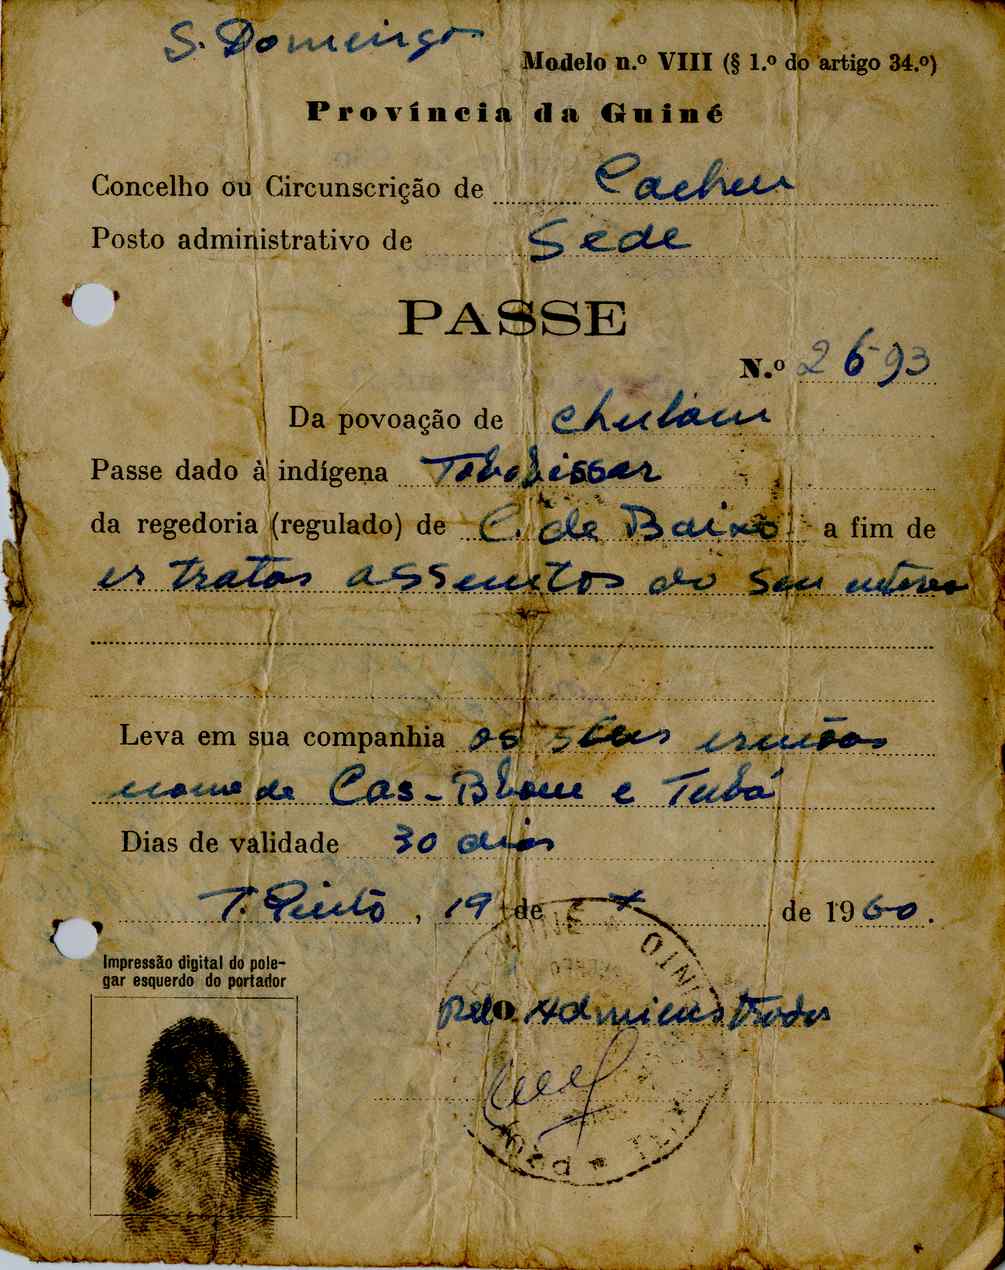 S. Domingos
Modelo n.º VIII (§ 1.º do artigo 34.º)
Província da Guiné
Concelho ou Circunscrição de Cacheu
Posto administrativo de Sede
PASSE
N.º 2693
Da povoação de Churbam
Passe dado à indígena Tobabissar
da regedoria (regulado) de C. de Baixo a fim de
ir tratar assuntos do seu interes
Leva em sua companhia os seus irmãos
nome de Cas-Bhom e Tubá
Dias de validade 30 dias
T. Pinto, 19 de X de 1960.
Impressão digital do pole-
gar esquerdo do portador
Pelo Administrador